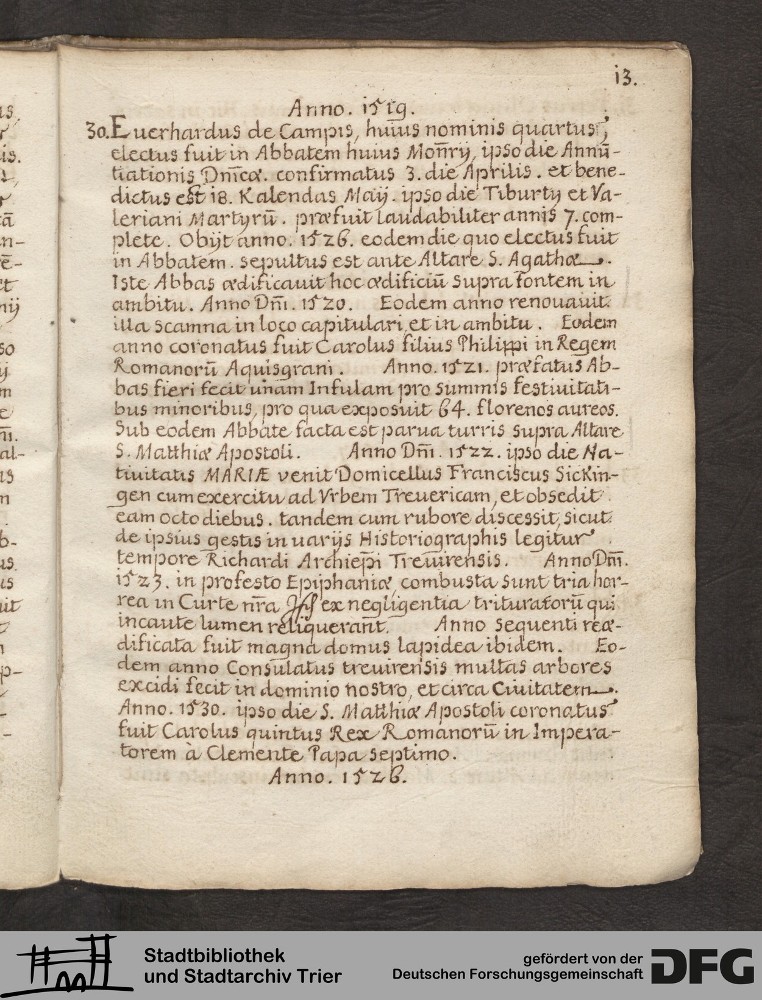 13.
Anno. 1519.
30. Euerhardus de Campis, huius nominis quartus,
electus fuit in Abbatem huius Moñrij, ipso die Annū-
tiationis Dñicæ. confirmatus 3. die Aprilis. et bene-
dictus est 18. Kalendas Maij. ipso die Tiburtij et Va-
leriani Martyrū. præfuit laudabiliter annis 7. com-
plete. Obijt anno. 1526. eodem die quo electus fuit
in Abbatem. sepultus est ante Altare S. Agathæ.
Iste Abbas ædificauit hoc ædificiū supra fontem in
ambitu. Anno Dñi. 1520. Eodem anno renouauit
illa scamna in loco capitulari, et in ambitu. Eodem
anno coronatus fuit Carolus filius Philippi in Regem
Romanorū Aquisgrani. Anno. 1521. præfatus Ab-
bas fieri fecit unam Infulam pro summis festiuitati-
bus minoribus, pro qua exposuit 64. florenos aureos.
Sub eodem Abbate facta est parua turris supra Altare
S. Matthiæ Apostoli. Anno Dñi. 1522. ipso die Na-
tiuitatis MARIÆ venit Domicellus Franciscus Sickin-
gen cum exercitu ad Vrbem Treuericam, et obsedit
eam octo diebus. tandem cum rubore discessit, sicut
de ipsius gestis in uarijs Historiographis legitur
tempore Richardi Archiep̃i Treuirensis. Anno Dñi.
1523. in profesto Epiphaniæ, combusta sunt tria hor-
rea in Curte nr̃a ex negligentia trituratorū qui
incaute lumen reliquerant. Anno sequenti reæ-
dificata fuit magna domus lapidea ibidem. Eo-
dem anno Consulatus treuirensis multas arbores
excidi fecit in dominio nostro, et circa Ciuitatem.
Anno. 1530. ipso die S. Matthiæ Apostoli coronatus
fuit Carolus quintus Rex Romanorū in Impera-
torem à Clemente Papa septimo.
Anno. 1526.
Stadtbibliothek
und Stadtarchiv Trier
gefördert von der
Deutschen Forschungsgemeinschaft
DFG